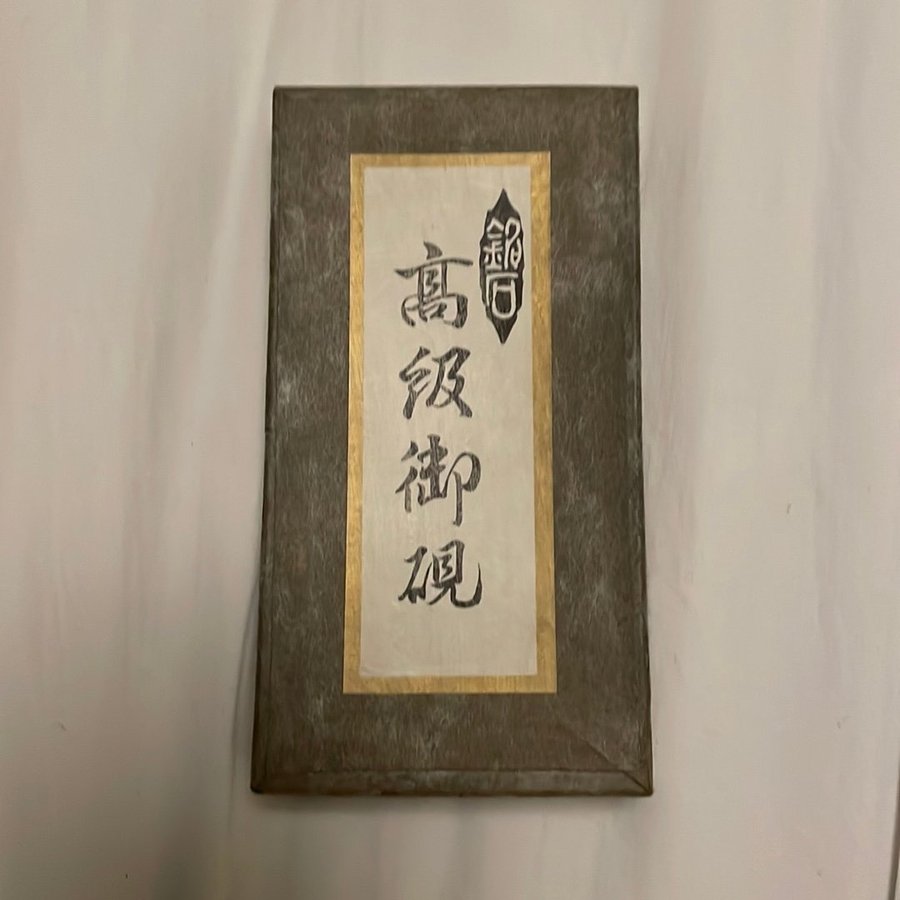 銘石
高級御硯